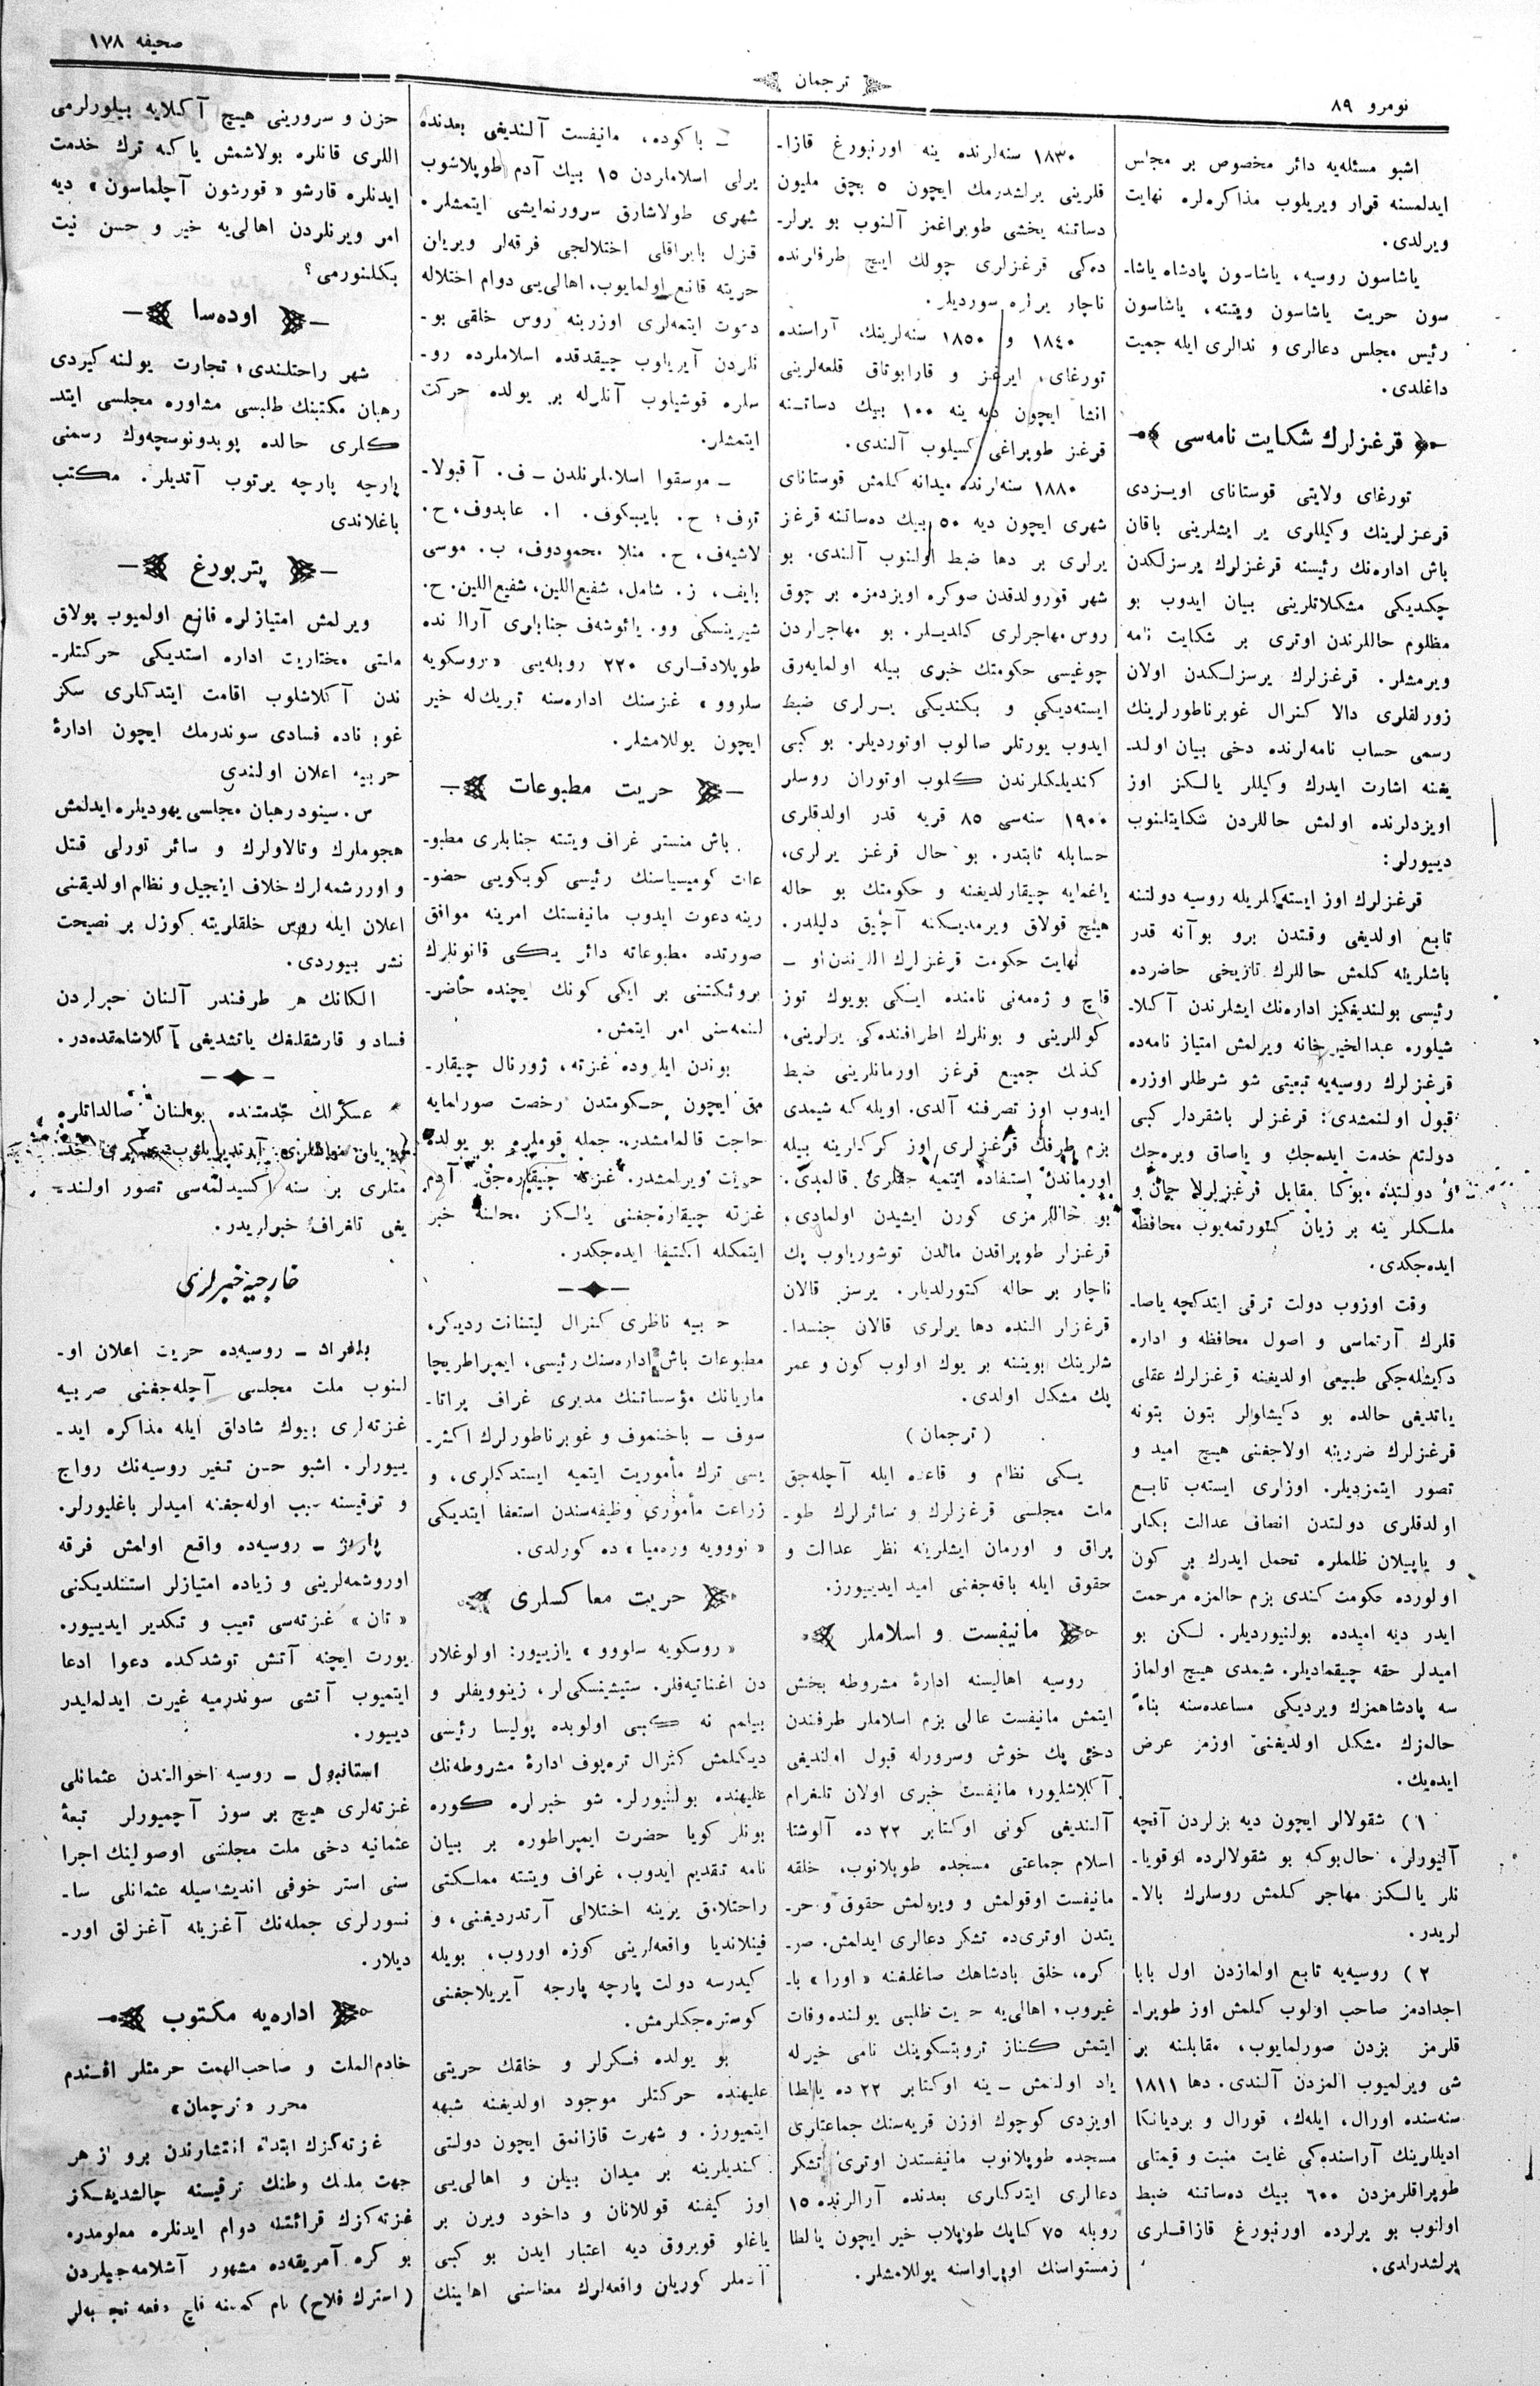 نومرو ۸۹
ترجمان
صحیفه ۱۷۸
اشبو مسئله‌یه دائر مخصوص بر مجلس
ایدلمسنه قرار ویریلوب مذاکره‌لره نهایت
ویرلدی.
یاشاسون روسیه، یاشاسون پادشاه یاشا-
سون حریت یاشاسون ویتته، یاشاسون
رئیس مجلس دعالری و ندالری ایله جمیت
داغلدی.
قرغزلرك شکایت نامه‌سی
تورغای ولایتی قوستانای اویزدی
قرغزلرینك وکیللری یر ایشلرینی باقان
باش اداره‌نك رئیسنه قرغزلرك یرسزلکدن
چکدیکی مشکلاتلرینی بیان ایدوب بو
مظلوم حاللرندن اوتری بر شکایت نامه
ویرمشلر. قرغزلرك یرسزلکدن اولان
زورلقلری دالا کنرال غوبرناطورلرینك
رسمی حساب نامه‌لرنده دخی بیان اولد-
یغنه اشارت ایدرك وکیللر یالکز اوز
اویزدلرنده اولمش حاللردن شکایتلنوب
دییورلر:
قرغزلرك اوز ایستكلریله روسیه دولتنه
تابع اولدیغی وقتدن برو بو آنه قدر
باشلرینه کلمش حاللرك تاریخی حاضرده
رئیسی بولندیغکیز اداره‌نك ایشلرندن آکلا-
شیلور. عبدالخیر خانه ویرلمش امتیاز نامه‌ده
قرغزلرك روسیه‌یه تبعیتی شو شرطلر اوزره
قبول اولنمشدی: قرغزلر باشقردلر کبی
دولته خدمت ایده‌جك و یاصاق ویره‌جك
و دولتده بوکا مقابل قرغزلرك جان و
ملکلرینه بر زیان کتورتمه‌یوب محافظه
ایده‌جکدی.
وقت اوزوب دولت ترقی ایتدکجه یاصا-
قلرك آرتماسی و اصول محافظه و اداره
دکیشله‌جکی طبیعی اولدیغنه قرغزلرك عقلی
یاتدیغی حالده بو دکیشلولر بتون بتونه
قرغزلرك ضررینه اولاجغنی هیچ امید و
تصور ایتمزدیلر. اوزلری ایستەب تابع
اولدقلری دولتدن انصاف عدالت بکلر
و یاپیلان ظلملره تحمل ایدرك بر کون
اولورده حکومت کندی بزم حالمزه مرحمت
ایدر دیه امیدده بولنیوردیلر. لکن بو
امیدلر حقه چیقمادیلر. شیمدی هیچ اولماز
سه پادشاهمزك ویردیکی مساعده‌سنه بناءً
حالمزك مشکل اولدیغنی اوزمز عرض
ایده‌یك.
۱) شقولالر ایچون دیه بزلردن آقچه
آلنیورلر، حال‌بوکه بو شقولالرده اوقویا-
نلر یالکز مهاجر کلمش روسلرك بالا-
لریدر.
۲) روسیه‌یه تابع اولمازدن اول بابا
اجدادمز صاحب اولوب کلمش اوز طوپرا-
قلرمز بزدن صورلمایوب، مقابلنه بر
شی ویرلمیوب المزدن آلندی. دها ۱۸۱۱
سنه‌سنده اورال، ایلەك، قورال و بردیانکا
ادیللرینك آراسنده‌کی غایت منبت و قیمتلی
طوپراقلرمزدن ۶۰۰ بیك ده‌ساتنه ضبط
اولنوب بو یرلرده اورنبورغ قازاقلری
یرلشدرلدی.
۱۸۳۰ سنه‌لرنده ینه اورنبورغ قازا-
قلرینی یرلشدرمك ایچون ۵ بچق ملیون
دساتنه یخشی طوپراغمز آلنوب بو یرلر-
ده‌کی قرغزلری چولك ایچ طرفلرنده
ناچار یرلره سوردیلر.
۱۸۴۰ و ۱۸۵۰ سنه‌لرینك آراسنده
تورغای، ایرغز و قارابوتاق قلعه‌لرینی
انشا ایچون دیه ینه ۱۰۰ بیك دساتنه
قرغز طوپراغی کسیلوب آلندی.
۱۸۸۰ سنه‌لرنده میدانه کلمش قوستانای
شهری ایچون دیه ۵۰ بیك ده‌ساتنه قرغز
یرلری بر دها ضبط اولنوب آلندی. بو
شهر قورولدقدن صوکره اویزدمزه بر چوق
روس مهاجرلری کلدیلر. بو مهاجرلردن
چوغیسی حکومتك خبری بیله اولمایه‌رق
ایسته‌دیکی و بکندیکی یرلری ضبط
ایدوب یورتلر صالوب اوتوردیلر. بو کبی
کندیلکلرندن کلوب اوتوران روسلر
۱۹۰۰ سنه‌سی ۸۵ قریه قدر اولدقلری
حسابله ثابتدر. بو حال قرغز یرلری،
یاغمایه چیقارلدیغنه و حکومتك بو حاله
هیچ قولاق ویرمدیکنه آچیق دلیلدر.
نهایت حکومت قرغزلرك اللرندن او -
قاچ و ژه‌مه‌نی نامنده ایکی بویوك توز
کوللرینی و بونلرك اطرافنده‌کی یرلرینی،
کذلك جمیع قرغز اورمانلرینی ضبط
ایدوب اوز تصرفنه آلدی. اویله که شیمدی
بزم طرفك قرغزلری اوز کرکلرینه بیله
اورماندن استفاده ایتمیه حقلری قالمدی.
بو حاللرمزی کورن ایشیدن اولمادی،
قرغزلر طوپراقدن مالدن توشوریلوب پك
ناچار بر حاله کتورلدیلر. یرسز قالان
قرغزلر النده دها یرلری قالان جنسدا-
شلرینك بوینینه بر یوك اولوب کون و عمر
پك مشکل اولدی.
(ترجمان)
یکی نظام و قاعده ایله آچله‌جق
ملت مجلسی قرغزلرك و سائرلرك طو-
پراق و اورمان ایشلرینه نظر عدالت و
حقوق ایله باقه‌جغنی امید ایدییورز.
مانیفست و اسلاملر
روسیه اهالیسنه ادارهٔ مشروطه بخش
ایتمش مانیفست عالی بزم اسلاملر طرفندن
دخی پك خوش و سرورله قبول اولندیغی
آکلاشلیور؛ مانیفست خبری اولان تلغرام
آلندیغی کونی اوکتابر ۲۲ ده آلوشتا
اسلام جماعتی مسجده طوپلانوب، خلقه
مانیفست اوقولمش و ویرلمش حقوق و حر-
یتدن اوتری‌ده تشکر دعالری ایدلمش. صو-
کره، خلق پادشاهك صاغلغنه «اورا» با-
غیروب، اهالی‌یه حریت طلبی یولنده وفات
ایتمش کناز تروبتسکوینك نامی خیرله
یاد اولنمش - ینه اوکتابر ۲۲ ده یالطا
اویزدی کوچوك اوزن قریه‌سنك جماعتلری
مسجده طوپلانوب مانیفستدن اوتری تشکر
دعالری ایتدکلری بعدنده آرالرنده ۱۵
روبله ۷۵ کاپك طوپلاب خیر ایچون یالطا
زمستواسنك اوپراواسنه یوللامشلر.
- باکوده، مانیفست آلندیغی بعدنده
یرلی اسلاملردن ۱۵ بیك آدم طوپلاشوب
شهری طولاشارق سرورنمایشی ایتمشلر.
قزل بایراقلی اختلالجی فرقه‌لر ویریلن
حریته قانع اولمایوب، اهالی‌یی دوام اختلاله
دعوت ایتمه‌لری اوزرینه روس خلقی بو-
نلردن آیریلوب چیقدقده اسلاملرده رو-
سلره قوشیلوب آنلرله بر یولده حرکت
ایتمشلر.
- موسقوا اسلاملرندن - ف. آقبولا-
توف؛ ح. بایبیکوف. ا. عابدوف، ح.
لاشیەف، ح. منلا محمودوف، ب. موسی
بایف، ز. شامل، شفیع‌اللین، شفیع‌اللین. ح.
شیرینسکی وو. یائوشەف جنابلری آرالرنده
طوپلادقلری ۲۲۰ روبله‌یی «روسکویه
سلوو» غزتسنك اداره‌سنه تبریك‌له خیر
ایچون یوللامشلر.
حریت مطبوعات
باش منستر غراف ویتته جنابلری مطبو-
عات کومیسیاسنك رئیسی کوبکویی حضو-
رینه دعوت ایدوب مانیفستك امرینه موافق
صورتده مطبوعاته دائر یکی قانونلرك
پروئکتنی بر ایکی کونك یچنده حاضر-
لنمه‌سنی امر ایتمش.
بوندن ایلروده غزته، ژورنال چیقار-
مق ایچون حکومتدن رخصت صورلمایه
حاجت قالمامشدر. جمله قوملره بو یولده
حریت ویرلمشدر. غزته چیقاره‌جق آدم
غزته چیقاره‌جغنی یالکز محلینه خبر
ایتمکله اکتیفا ایده‌جکدر.
حربیه ناظری کنرال لیتنانت ردیکر،
مطبوعات باش اداره‌سنك رئیسی، ایمپراطریچا
ماریانك مؤسساتنك مدیری غراف پراتا-
سوف - باخمتوف و غوبرناطورلرك اکثر-
یسی ترك مأموریت ایتمیه ایستدکلری، و
زراعت مأموری وظیفه‌سندن استعفا ایتدیکی
«نوویه ورەمیا» ده کورلدی.
حریت معاکسلری
«روسکویه سلووو» یازییور: اولوغلار
دن اغناتیەفلر. ستیشینسکی‌لر، زینوویفلر و
بیلمم نه کبی اولوبده پولیسا رئیسی
دیکلمش کنرال تره‌پوف ادارهٔ مشروطه‌نك
علیهنده بولنیورلر. شو خبرلره کوره
بونلر کویا حضرت ایمپراطوره بر بیان
نامه تقدیم ایدوب، غراف ویتته مملکتی
راحتلامق یرینه اختلالی آرتدردیغنی، و
فینلاندیا واقعه‌لرینی کوزه اوروب، بویله
کیدرسه دولت پارچه پارچه آیریلاجغنی
کوستره‌جکلرمش.
بو یولده فکرلر و خلقك حریتی
علیهنده حرکتلر موجود اولدیغنه شبهه
ایتمیورز. و شهرت قازانمق ایچون دولتی
کندیلرینه بر میدان بیلن و اهالی‌یی
اوز کیفنه قوللانان و داخود ویرن بر
یاغلو قویروق دیه اعتبار ایدن بو کبی
آدملر کوریلن واقعه‌لرك معناسنی اهالینك
حزن و سرورینی هیچ آکلایه بیلورلرمی
اللری قانلره بولاشمش یاکه ترك خدمت
ایدنلره قارشو «قورشون آجلماسون» دیه
امر ویرنلردن اهالی‌یه خیر و حسن نیت
بکلنورمی؟
اوده‌سا
شهر راحتلندی؛ تجارت یولنه کیردی
رهبان مکتبنك طلبسی مشاوره مجلسی ایتد-
کلری حالده پوبدونوسچەوك رسمنی
پارچه پارچه یرتوب آتدیلر. مکتب
باغلاندی
پتربورغ
ویرلمش امتیازلره قانع اولمیوب پولاق
ملتی مختاریت اداره استدیکی حرکتلر-
ندن آکلاشلوب اقامت ایتدکلری سکز
غوبرناده فسادی سوندرمك ایچون ادارهٔ
حربیه اعلان اولندی
س. سینود رهبان مجلسی یهودیلره ایدلمش
هجوملرك و تالاولرك و سائر تورلی قتل
و اوررشمه‌لرك خلاف اینجیل و نظام اولدیغنی
اعلان ایله روس خلقلرینه کوزل بر نصیحت
نشر بیوردی.
الکانك هر طرفندر آلنان خبرلردن
فساد و قارشقلغك یاتشدیغی آکلاشلمقده‌در.
عسکرلك خدمتنده بولنان صالداتلره
متلری بر سنه اکسیدلمه‌سی تصور اولند-
یغی تلغراف خبرلریدر.
خارجیه خبرلری
بلغراد - روسیه‌ده حریت اعلان او-
لنوب ملت مجلسی آچله‌جغنی صربیه
غزته‌لری بیوك شادلق ایله مذاکره اید-
ییورلر. اشبو حسن تغیر روسیه‌نك رواج
و ترقیسنه سبب اوله‌جغنه امیدلر باغلیورلر.
پاریژ - روسیه‌ده واقع اولمش فرقه
اوروشمه‌لرینی و زیاده امتیازلر استنلدیکنی
«تان» غزته‌سی تعیب و تکدیر ایدییور.
یورت ایچنه آتش توشدکده دعوا ادعا
ایتمیوب آتشی سوندرمیه غیرت ایدلملیدر
دییور.
استانبول - روسیه احوالندن عثمانلی
غزته‌لری هیچ بر سوز آچمیورلر تبعهٔ
عثمانیه دخی ملت مجلسی اوصولینك اجرا
سنی استر خوفی اندیشه‌سیله عثمانلی سا-
نسورلری جمله‌نك آغزینه آغزلق اور-
دیلار.
اداره‌یه مکتوب
خادم‌الملت و صاحب‌الهمت حرمتلر افندم
محرر «ترجمان»
غزته‌کزك ابتداء انتشارندن برو از هر
جهت ملتك وطنك ترقیسنه چالشدیغکز
غزته‌کزك قرائتنه دوام ایدنلره معلومدر.
بو کره آمریقه‌ده مشهور آشلامه‌جیلردن
(استرك فلاح) نام کمسنه قاچ دفعه تجربه‌لر